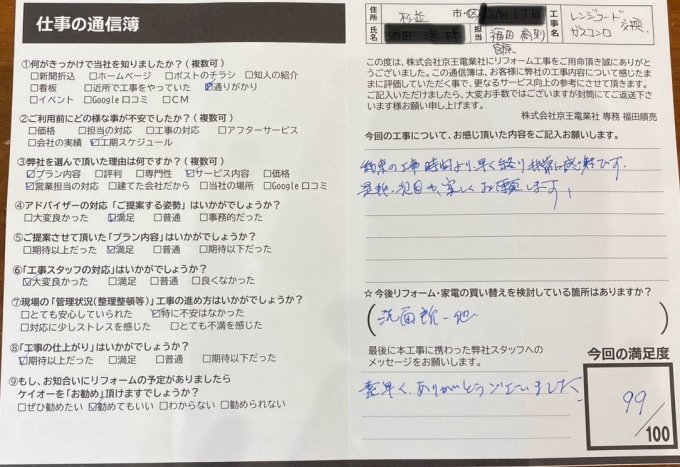 仕事の通信簿
①何がきっかけで当社を知りましたか？(複数可)
□新聞折込 □ホームページ □ポストのチラシ □知人の紹介
□看板 □近所で工事をやっていた ☑通りがかり
□イベント □Google口コミ □CM
②ご利用前にどの様な事が不安でしたか？(複数可)
□価格 □担当の対応 □工事の対応 □アフターサービス
□会社の実績 ☑工期スケジュール
③弊社を選んで頂いた理由は何ですか？(複数可)
☑プラン内容 □評判 □専門性 ☑サービス内容 □価格
☑営業担当の対応 □建てた会社だから □当社の場所 □Google口コミ
④アドバイザーの対応「ご提案する姿勢」はいかがでしょうか？
□大変良かった ☑満足 □普通 □事務的だった
⑤ご提案させて頂いた「プラン内容」はいかがでしょうか？
□期待以上だった ☑満足 □普通 □期待以下だった
⑥「工事スタッフの対応」はいかがでしょうか？
☑大変良かった □満足 □普通 □良くなかった
⑦現場の「管理状況(整理整頓等)」工事の進め方はいかがでしょうか？
□とても安心していられた ☑特に不安はなかった
□対応に少しストレスを感じた □とても不満を感じた
⑧「工事の仕上がり」はいかがでしょうか？
☑期待以上だった □満足 □普通 □期待以下だった
⑨もし、お知合いにリフォームの予定がありましたら
ケイオーを「お勧め」頂けますでしょうか？
□ぜひ勧めたい ☑勧めてもいい □わからない □勧められない
住所 杉並 市・区
氏名 様 担当 福田 工事名 レンジフード ガスコンロ 交換
この度は、株式会社京王電業社にリフォーム工事をご用命頂き誠にありがとうございました。この通信簿は、お客様に弊社の工事内容について感じたままに評価していただく事で、更なるサービス向上の参考にさせて頂きます。
ご記入いただけましたら、大変お手数ではございますが封筒にてご返送下さいます様お願い申し上げます。
株式会社京王電業社 専務 福田順亮
今回の工事について、お感じ頂いた内容をご記入お願いします。
約束の工事時間より、早く終り
是非、次回も、宜しくお願します！
☆今後リフォーム・家電の買い替えを検討している箇所はありますか？
(洗面所 他)
最後に本工事に携わった弊社スタッフへの
メッセージをお願いします。
素早く、ありがとうございました。
今回の満足度
99/100